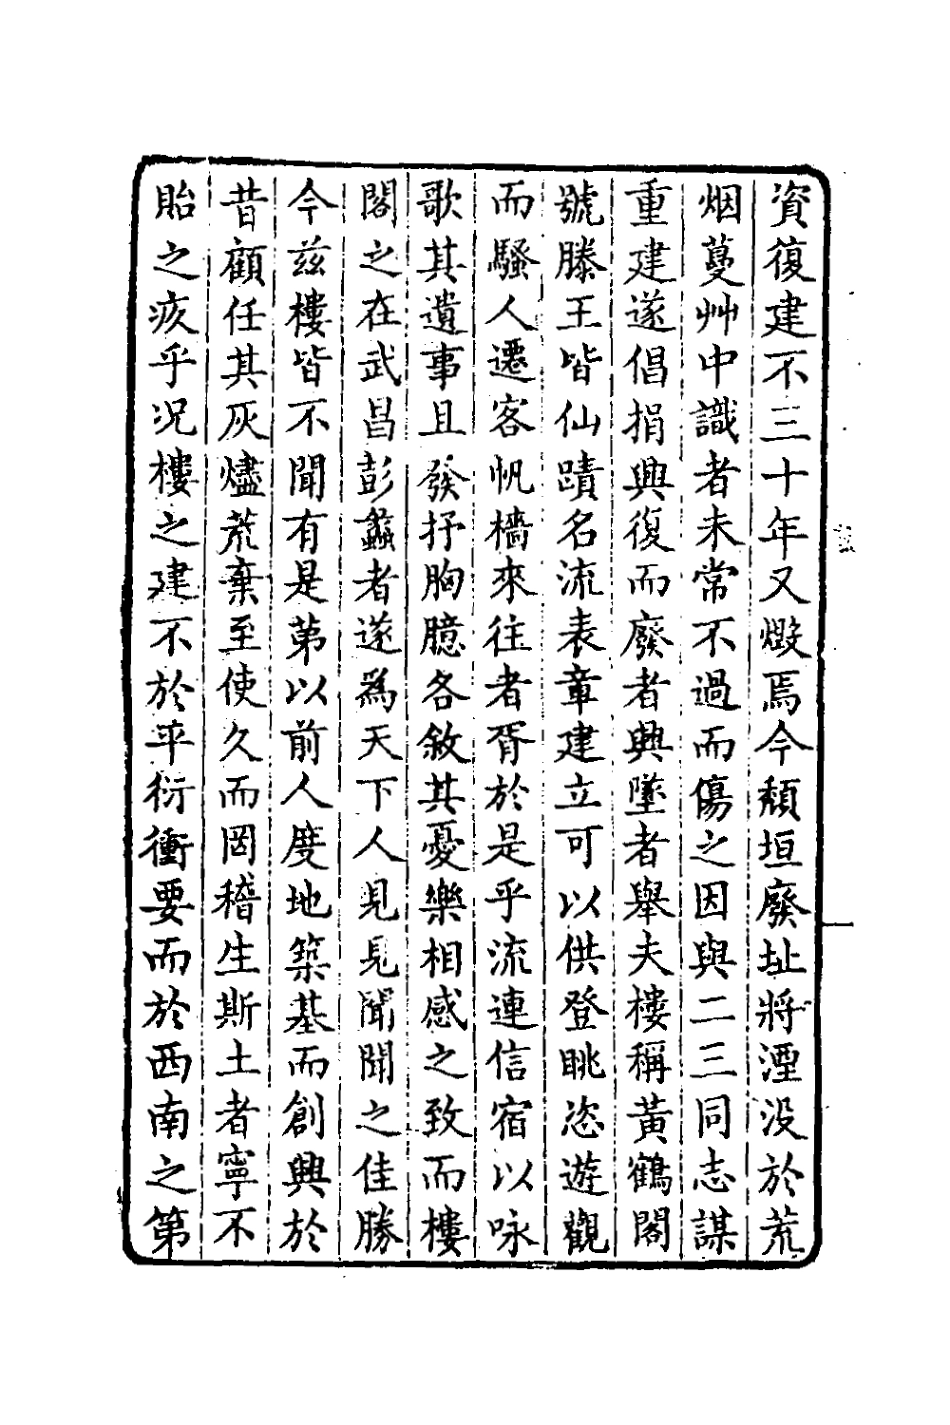 資復建不三十年又燬焉今頹垣廢址將湮没於荒
烟蔓艸中識者未常不過而傷之因與二三同志謀
重建遂倡捐興復而廢者興墜者舉夫樓稱黃鶴閣
號滕王皆仙蹟名流表章建立可以供登眺恣遊觀
而騷人遷客帆檣來往者胥於是乎流連信宿以咏
歌其遺事且發抒胸臆各敘其憂樂相感之致而樓
閣之在武昌彭蠡者遂爲天下人見見聞聞之佳勝
今茲樓皆不聞有是第以前人度地築基而創興於
昔顧任其灰燼荒棄至使久而罔稽生斯土者寧不
貽之疚乎况樓之建不於平衍衝要而於西南之第